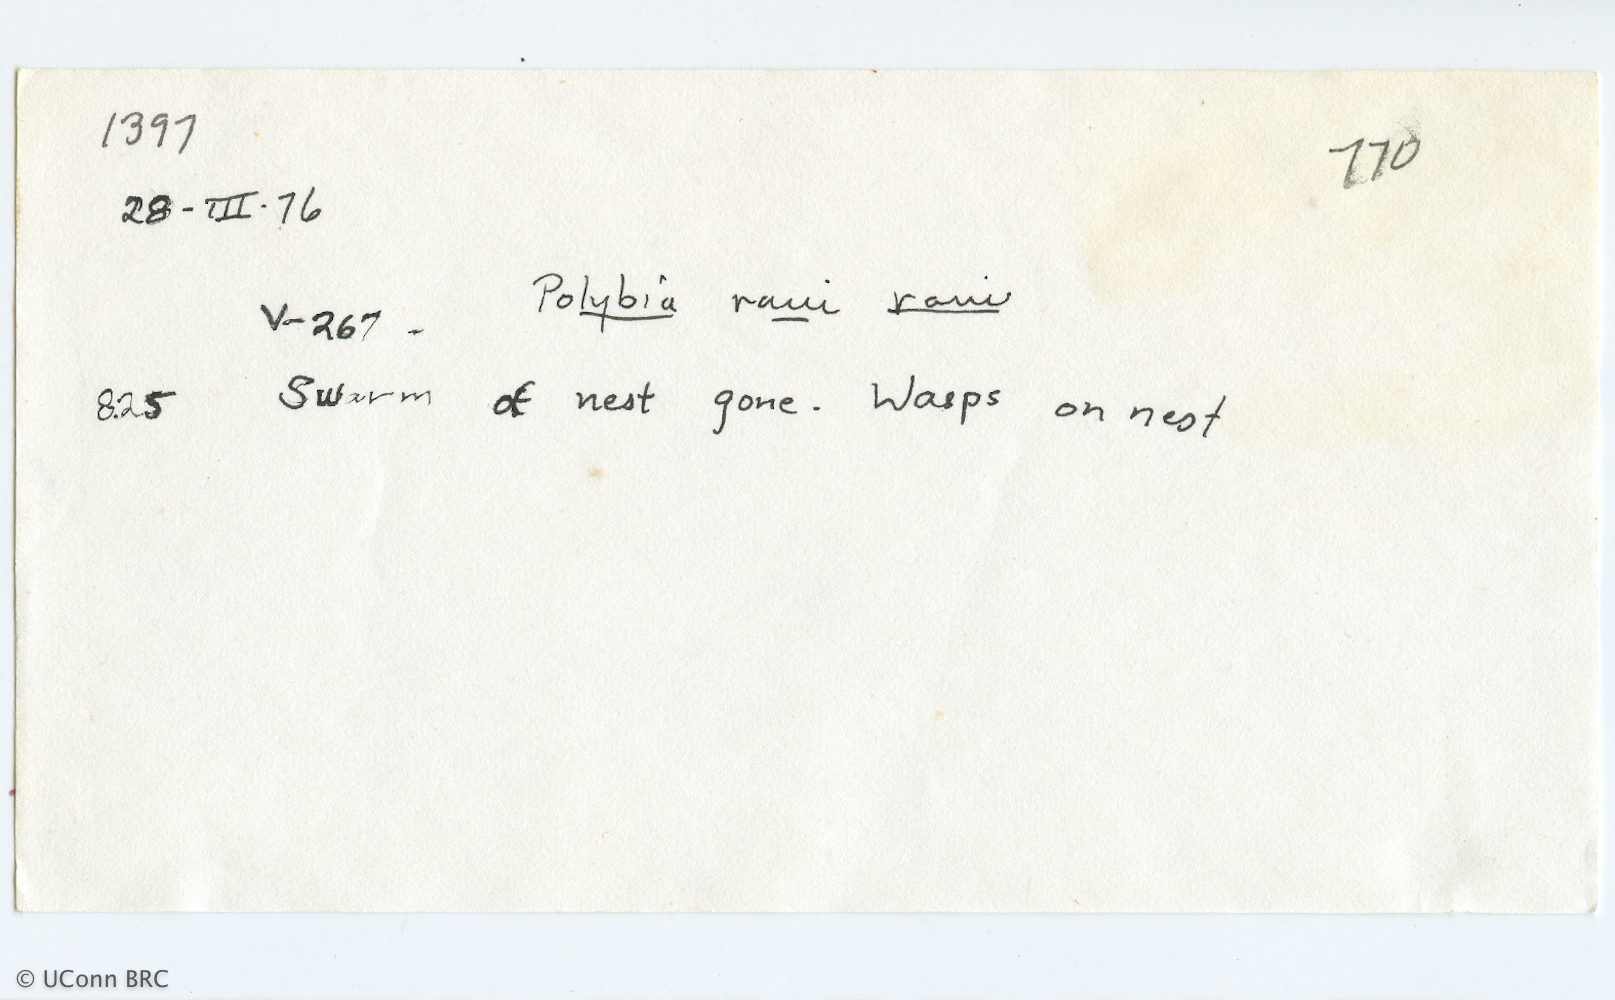 1397
770
28-III-76
Polybia raui raui
V-267 -
825 Swarm of nest gone. Wasps on nest
© UConn BRC